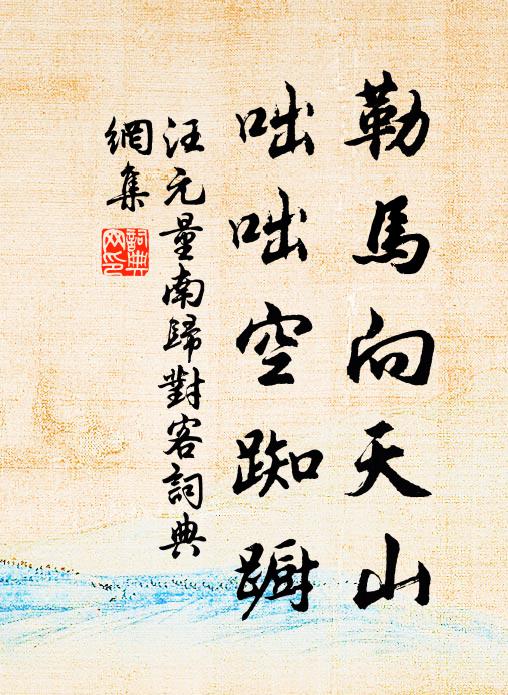 勒馬向天山
咄咄空踟蹰
汪元量南歸對客詞典
網集
詞典
网印